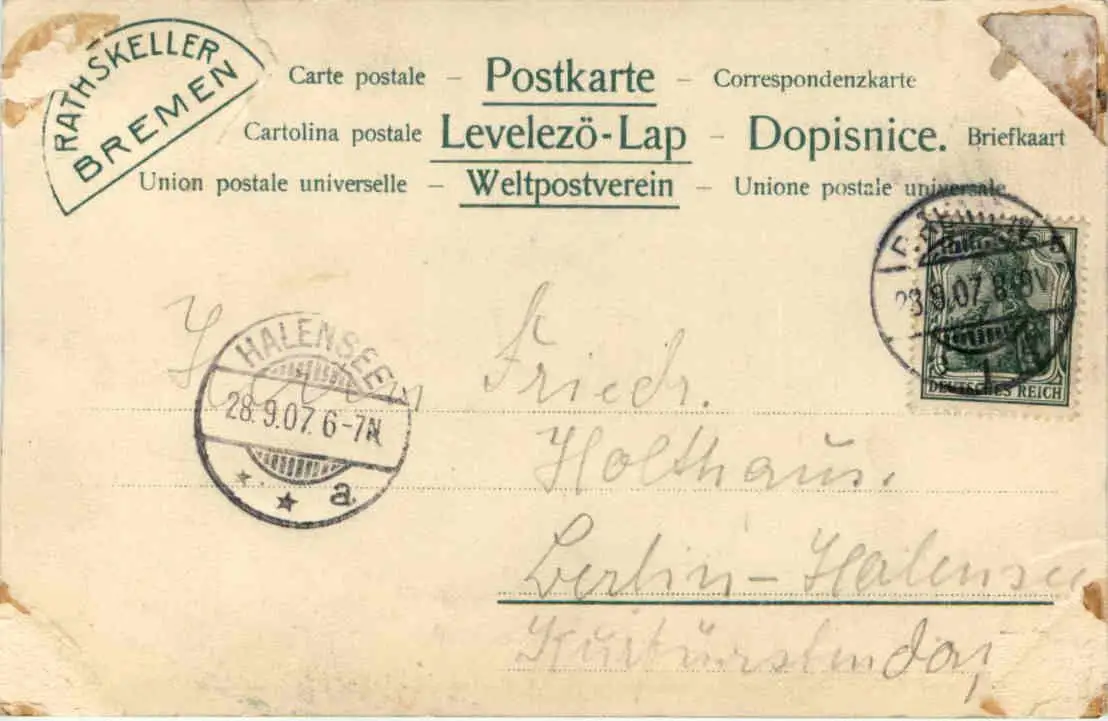 RATHSKELLER
BREMEN
Carte postale – Postkarte – Correspondenzkarte
Cartolina postale Levelezö-Lap – Dopisnice. Briefkaart
Union postale universelle – Weltpostverein – Unione postale universale.
28.9.07. 8-9V
DEUTSCHES REICH
HALENSEE
28.9.07. 6-7N
a
Friedr.
Holthaus.
Berlin-Halensee
Kurfürstendo